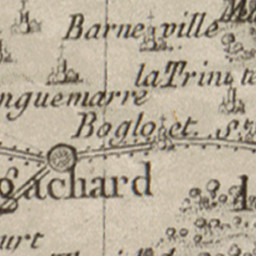 Barneville
la Trinite
nguemarre
Bogloet St
gachard
urt